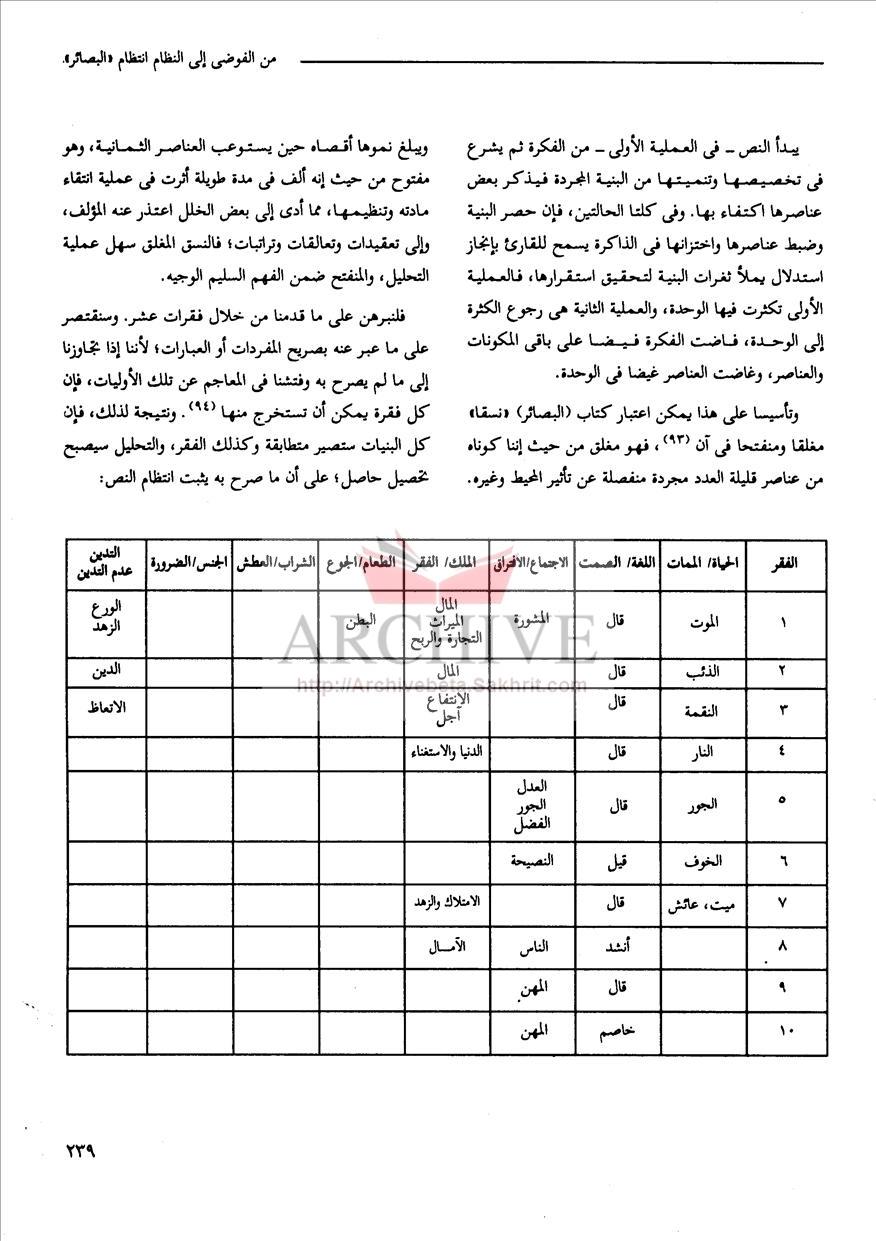 من الفوضى إلى النظام انتظام «البصائر».
يبدأ النص ــ فى العملية الأولى ــ من الفكرة ثم يشرع
فى تخصيصها وتنميتها من البنية المجردة فيذكر بعض
عناصرها اكتفاء بها. وفى كلتا الحالتين، فإن حصر البنية
وضبط عناصرها واختزانها فى الذاكرة يسمح للقارئ بإنجاز
استدلال يملأ ثغرات البنية لتحقيق استقرارها، فالعملية
الأولى تكثرت فيها الوحدة، والعملية الثانية هى رجوع الكثرة
إلى الوحدة، فاضت الفكرة فيضا على باقى المكونات
والعناصر، وغاضت العناصر غيضا فى الوحدة.
وتأسيسا على هذا يمكن اعتبار كتاب (البصائر) «نسقا»
مغلقا ومنفتحا فى آن (٩٣)، فهو مغلق من حيث إننا كوناه
من عناصر قليلة العدد مجردة منفصلة عن تأثير المحيط وغيره.
ويبلغ نموها أقصاه حين يستوعب العناصر الثمانية، وهو
مفتوح من حيث إنه ألف فى مدة طويلة أثرت فى عملية انتقاء
مادته وتنظيمها، مما أدى إلى بعض الخلل اعتذر عنه المؤلف،
وإلى تعقيدات وتعالقات وتراتبات؛ فالنسق المغلق سهل عملية
التحليل، والمنفتح ضمن الفهم السليم الوجيه.
فلنبرهن على ما قدمنا من خلال فقرات عشر. وسنقتصر
على ما عبر عنه بصريح المفردات أو العبارات؛ لأننا إذا تجاوزنا
إلى ما لم يصرح به وفتشنا فى المعاجم عن تلك الأوليات، فإن
كل فقرة يمكن أن تستخرج منها (٩٤). ونتيجة لذلك، فإن
كل البنيات ستصير متطابقة وكذلك الفقر، والتحليل سيصبح
تحصيل حاصل؛ على أن ما صرح به يثبت انتظام النص:
الفقر الحياة/ الممات اللغة/ الصمت الاجتماع/الافتراق الملك/ الفقر الطعام/الجوع الشراب/العطش الجنس/الضرورة التدين
عدم التدين
١ الموت قال المشورة المال
الميراث
التجارة والربح البطن الورع
الزهد
٢ الذئب قال المال الدين
٣ النقمة قال الانتفاع
آجل الاتعاظ
٤ النار قال الدنيا والاستغناء
٥ الجور قال العدل
الجور
الفضل
٦ الخوف قيل النصيحة
٧ ميت، عائش قال الامتلاك والزهد
٨ أنشد الناس الآمال
٩ قال المهن
١٠ خاصم المهن
ARCHIVE
http://Archivebeta.Sakhrit.com
٢٣٩